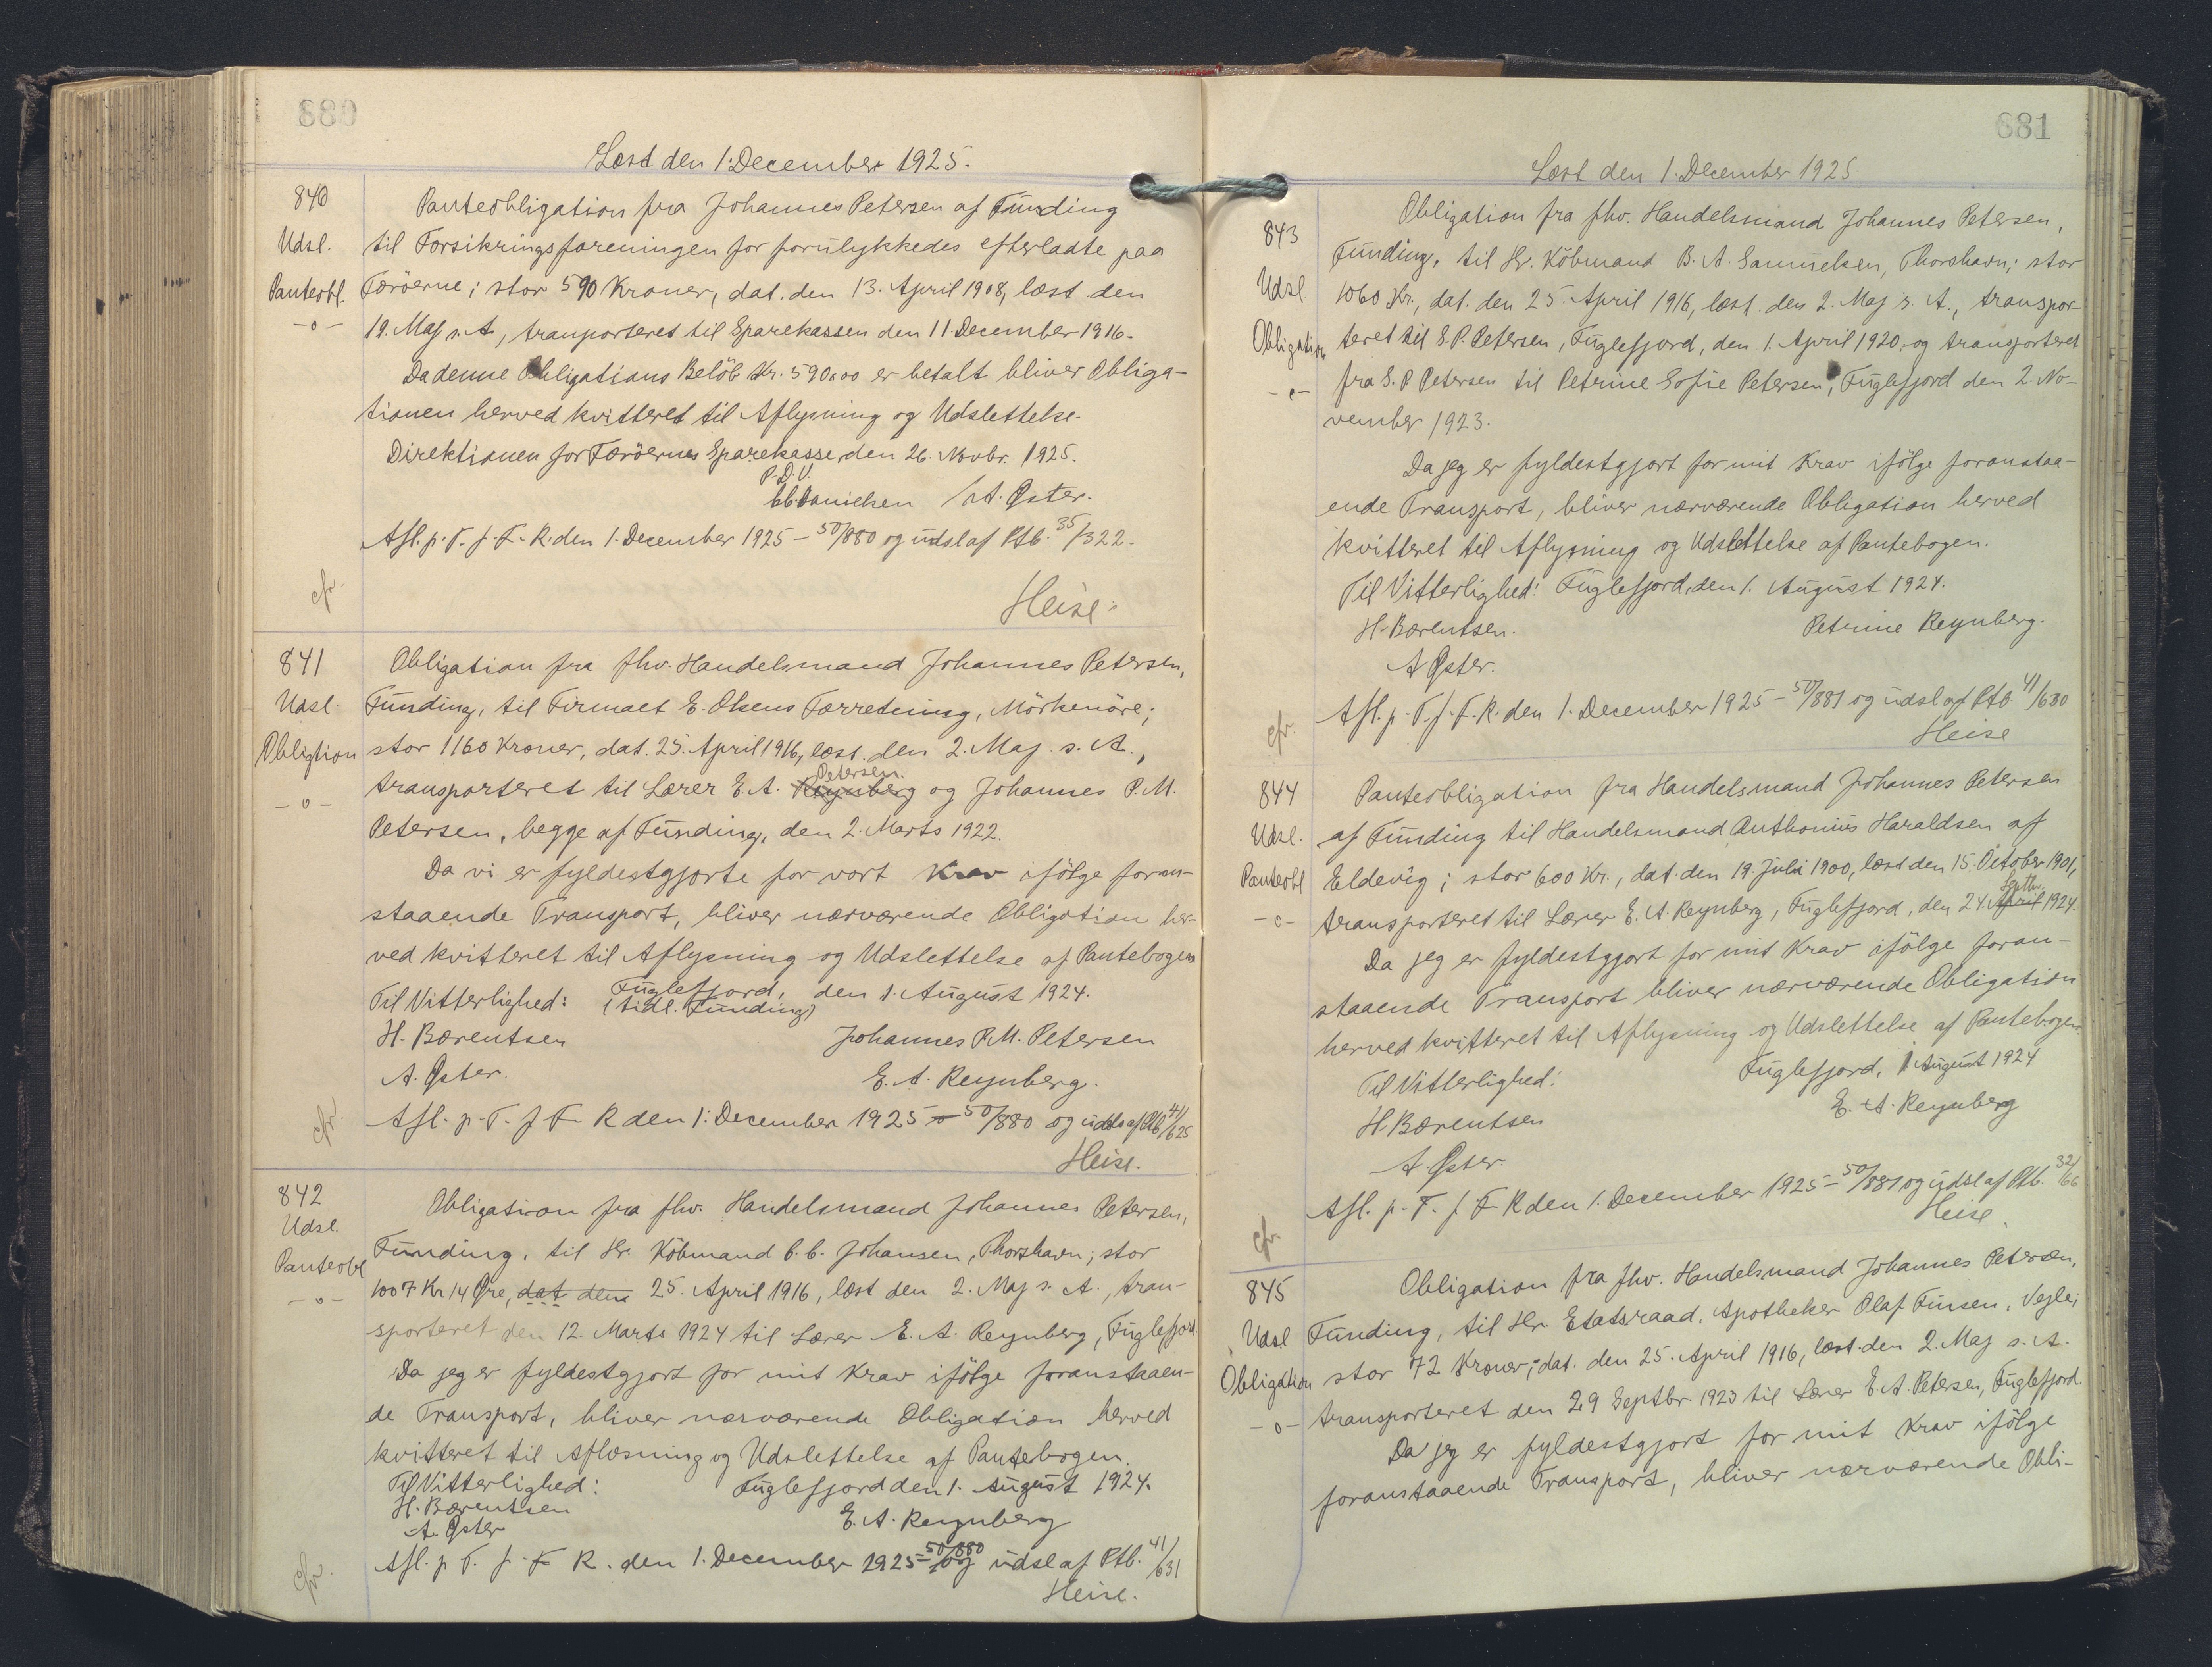 880
Læst den 1. December 1925.
840
Udsl.
Panteobl.
-o-
Panteobligation fra Johannes Petersen af Funding
til Forsikringsforeningen for forulykkedes efterladte paa
Færöerne; stor 590 Kroner, dat. den 13. April 1908, læst den
19. Maj s. A., tranporteret til Sparekassen den 11 December 1916.
Da denne Obligations Belöb Kr. 590.00 er betalt bliver Obliga-
tionen herved kvitteret til Aflysning og Udslettelse.
Direktionen for Færöernes Sparekasse, den 26. Novbr. 1925.
P.D.V.
C.C. Danielsen / A. Øster.
Afl. p. T. f. F. R. den 1. December 1925 - 50/880 og udsl af Ptb. 35/322.
cfr.
Heise.
841
Udsl.
Obligtion
-o-
Obligation fra fhv. Handelsmand Johannes Petersen,
Funding, til Firmaet E. Olsens Forretning, Mörkenöre;
stor 1160 Kroner, dat. 25. April 1916, læst den 2. Maj s. A.,
Petersen.
transporteret til Lærer E. A. Reynberg og Johannes P. M.
Petersen, begge af Funding, den 2. Marts 1922.
Da vi er fyldestgjorte for vort Krav ifölge foran-
staaende Transport, bliver nærværende Obligation her-
ved kvitteret til Aflysning og Udslettelse af Pantebogen
Til Vitterlighed: Fuglefjord, den 1. August 1924.
(tidl. Funding)
H. Bærentsen Johannes P. M. Petersen
A. Øster. E. A. Reynberg.
Afl. p. T. f F R den 1. December 1925 - 50/880 og udsl af Ptb. 41/625
cfr.
Heise.
842
Udsl.
Panteobl
-o-
Obligation fra fhv. Handelsmand Johannes Petersen,
Funding, til Hr. Köbmand C. C. Johansen, Thorshavn; stor
1007 Kr 14 Øre, dat den 25. April 1916, læst den 2. Maj s. A., tran-
sporteret den 12. Marts 1924 til Lærer E. A. Reynberg, Fuglefjord
Da jeg er fyldestgjort for mit Krav ifölge foranstaaen-
de Transport, bliver nærværende Obligation herved
kvitteret til Aflæsning og Udslettelse af Pantebogen.
Til Vitterlighed: Fuglefjord den 1. August 1924.
H. Bærentsen
A. Øster E. A. Reynberg
Afl. p T. f. F R. den 1. December 1925 - 50/880 og udsl af Ptb. 41/631
cfr.
Heise.
881
Læst den 1. December 1925
843
Udsl
Obligation
-o-
Obligation fra fhv. Handelsmand Johannes Petersen,
Funding, til Hr. Köbmand B. A. Samuelsen, Thorshavn; stor
1060 Kr., dat. den 25. April 1916, læst. den 2. Maj s. A., transpor-
teret til S. P. Petersen, Fuglefjord, den 1. April 1920, og transporteret
fra S. P Petersen til Petrine Sofie Petersen, Fuglefjord den 2. No-
vember 1923.
Da jeg er fyldestgjort for mit Krav ifölge foranstaa-
ende Transport, bliver nærværende Obligation herved
kvitteret til Aflysning og Udslettelse af Pantebogen.
Til Vitterlighed: Fuglefjord, den 1. August 1924.
H. Bærentsen. Petrine Reynberg.
A Øster.
Afl. p. T. f. F. R. den 1. December 1925 - 50/881 og udsl af Ptb. 41/630
cfr.
Heise
844
Udsl.
Panteobl
-o-
Panteobligation fra Handelsmand Johannes Petersen
af Funding til Handelsmand Anthonius Haraldsen af
Eldevig; stor 600 Kr., dat. den 19. Juli 1900, læst den 15. October 1901,
Septbr.
transporteret til Lærer E. A. Reynberg, Fuglefjord, den 24. April 1924.
Da jeg er fyldestgjort for mit Krav ifölge foran-
staaende Transport bliver nærværende Obligation
herved kvitteret til Aflysning og Udslettelse af Pantebogen.
Til Vitterlighed: Fuglefjord, 1 August 1924
H. Bærentsen E. A. Reynberg
A. Øster.
Afl. p. T. f. F R den 1. December 1925 - 50/881 og udsl af Ptb. 32/66
cfr.
Heise.
845
Udsl
Obligation
-o-
Obligation fra fhv. Handelsmand Johannes Petersen,
Funding, til Hr. Etatsraad, Apotheker Olaf Finsen, Vejle;
stor 72 Kroner; dat. den 25. April 1916, læst. den 2. Maj s. A.
transporteret den 29 Septbr 1923 til Lærer E. A. Petersen, Fuglefjord.
Da jeg er fyldestgjort for mit Krav ifölge
foranstaaende Transport, bliver nærværende Obli-